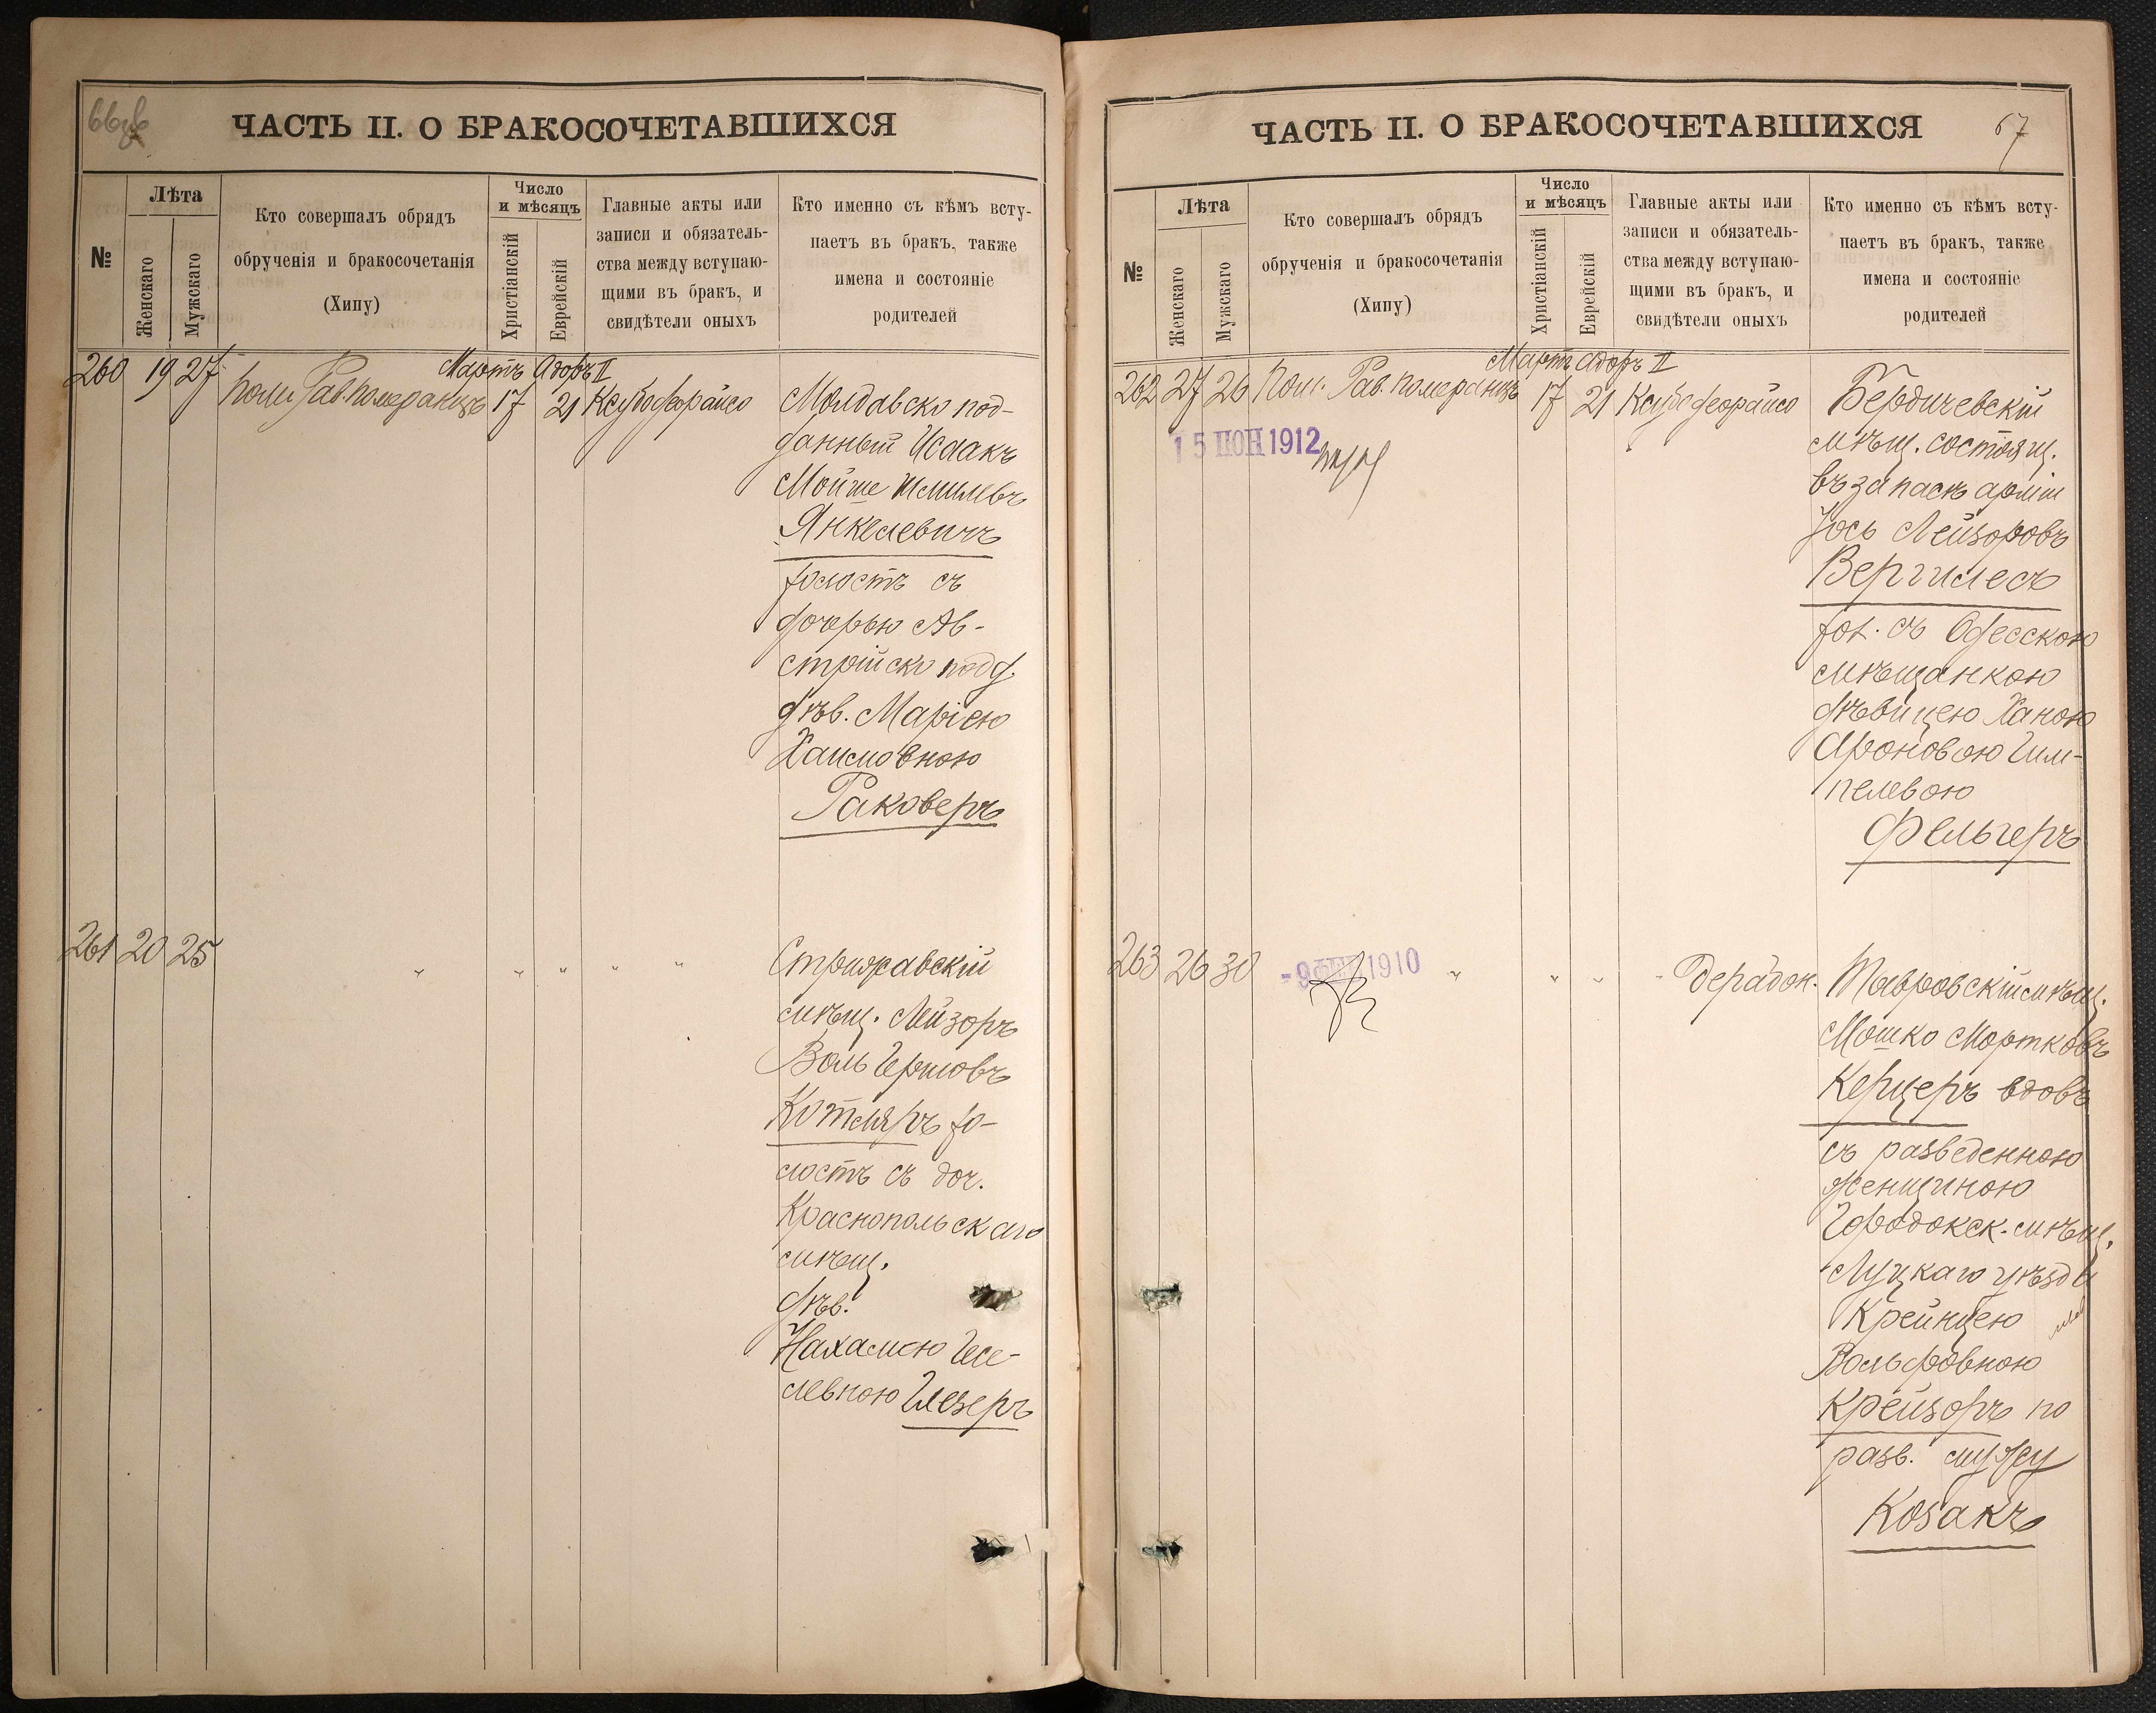 66
ЧАСТЬ II. О БРАКОСОЧЕТАВШИХСЯ
№
Лѣта
Женскаго
Мужскаго
Кто совершалъ обрядъ
обрученія и бракосочетанія
(Хипу)
Число
и мѣсяцъ
Христіанскій
Еврейскій
Главные акты или
записи и обязатель-
ства между вступаю-
щими въ бракъ, и
свидѣтели оныхъ
Кто именно съ кѣмъ всту-
паетъ въ бракъ, также
имена и состояніе
родителей
Мартъ Адоръ II
260 19 27 Пом. Рав. Померанцъ 17 21 Ксубо дерайсо
Молдавско под-
данный Исаакъ
Мойше Шмилевъ
Янкелевичъ
холостъ съ
дочерью Ав-
стрійско подд.
дѣв. Маріею
Хаимовною
Раковеръ
261 20 25 " " " " "
Стрижавскій
мѣщ. Лейзоръ
Воль Гершовъ
Котляръ хо-
лостъ съ доч.
Краснопольскаго
мѣщ.
дѣв.
Нахамою
левною Глезеръ
ЧАСТЬ II. О БРАКОСОЧЕТАВШИХСЯ
67
№
Лѣта
Женскаго
Мужскаго
Кто совершалъ обрядъ
обрученія и бракосочетанія
(Хипу)
Число
и мѣсяцъ
Христіанскій
Еврейскій
Главные акты или
записи и обязатель-
ства между вступаю-
щими въ бракъ, и
свидѣтели оныхъ
Кто именно съ кѣмъ всту-
паетъ въ бракъ, также
имена и состояніе
родителей
Мартъ Адоръ II
262 27 26 Пом. Рав. Померанцъ 17 21 Ксубо дерайсо
15 ІЮН 1912
Бердичевскій
мѣщ. состоящ.
въ запасѣ арміи
Іось Лейзоровъ
Вергилесъ
хол. съ Одесскою
мѣщанкою
дѣвицею Ханою
Ароновою Гим-
пелевою
Фельгеръ
263 26 30 -9 1910 " " " " дерадон.
Тавровскій мѣщ.
Мошко Мортковъ
Керцеръ вдовъ
съ разведенною
женщиною
Городокск. мѣщ.
Луцкаго уѣзда
Крейнцею
Вольфовною
Крейзоръ по
разв. мужу
Козакъ